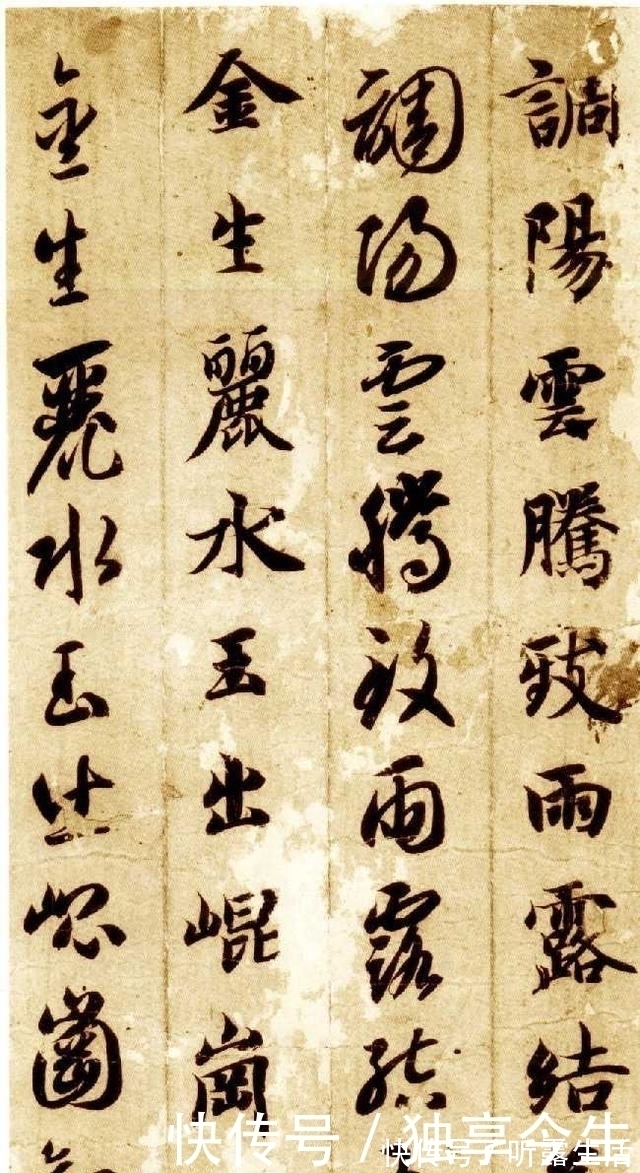 調陽雲騰致雨露結
調陽雲騰致雨露結
金生麗水玉出崐崗
金生麗水玉出崐崗
快传号 / 独享今生
快传号 / 听露生活